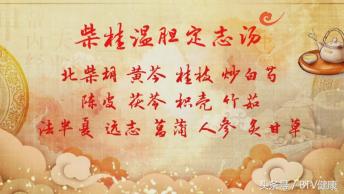 柴桂温胆定志汤
北柴胡 黄芩 桂枝 炒白芍
陈皮 茯苓 枳壳 竹茹
法半夏 远志 菖蒲 人参 炙甘草
头条号 / BTV健康